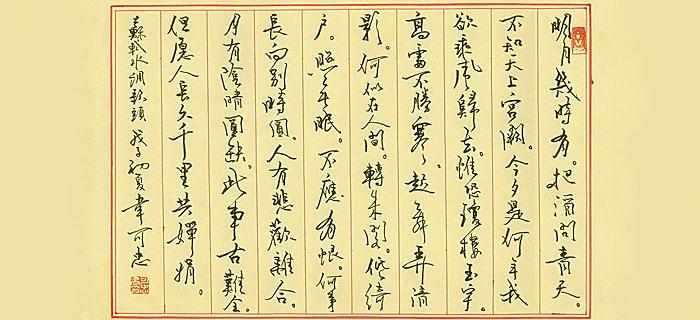 明月幾時有。把酒問青天。
不知天上宮闕。今夕是何年我
欲乘風歸去。惟恐瓊樓玉宇。
高處不勝寒。起舞弄清
影。何似在人間。轉朱閣。低綺
户。照無眠。不應有恨。何事
長向別時圓。人有悲歡離合。
月有陰晴圓缺。此事古難全。
但愿人長久千里共嬋娟。
蘇軾水調歌頭 戊子初夏 韋可